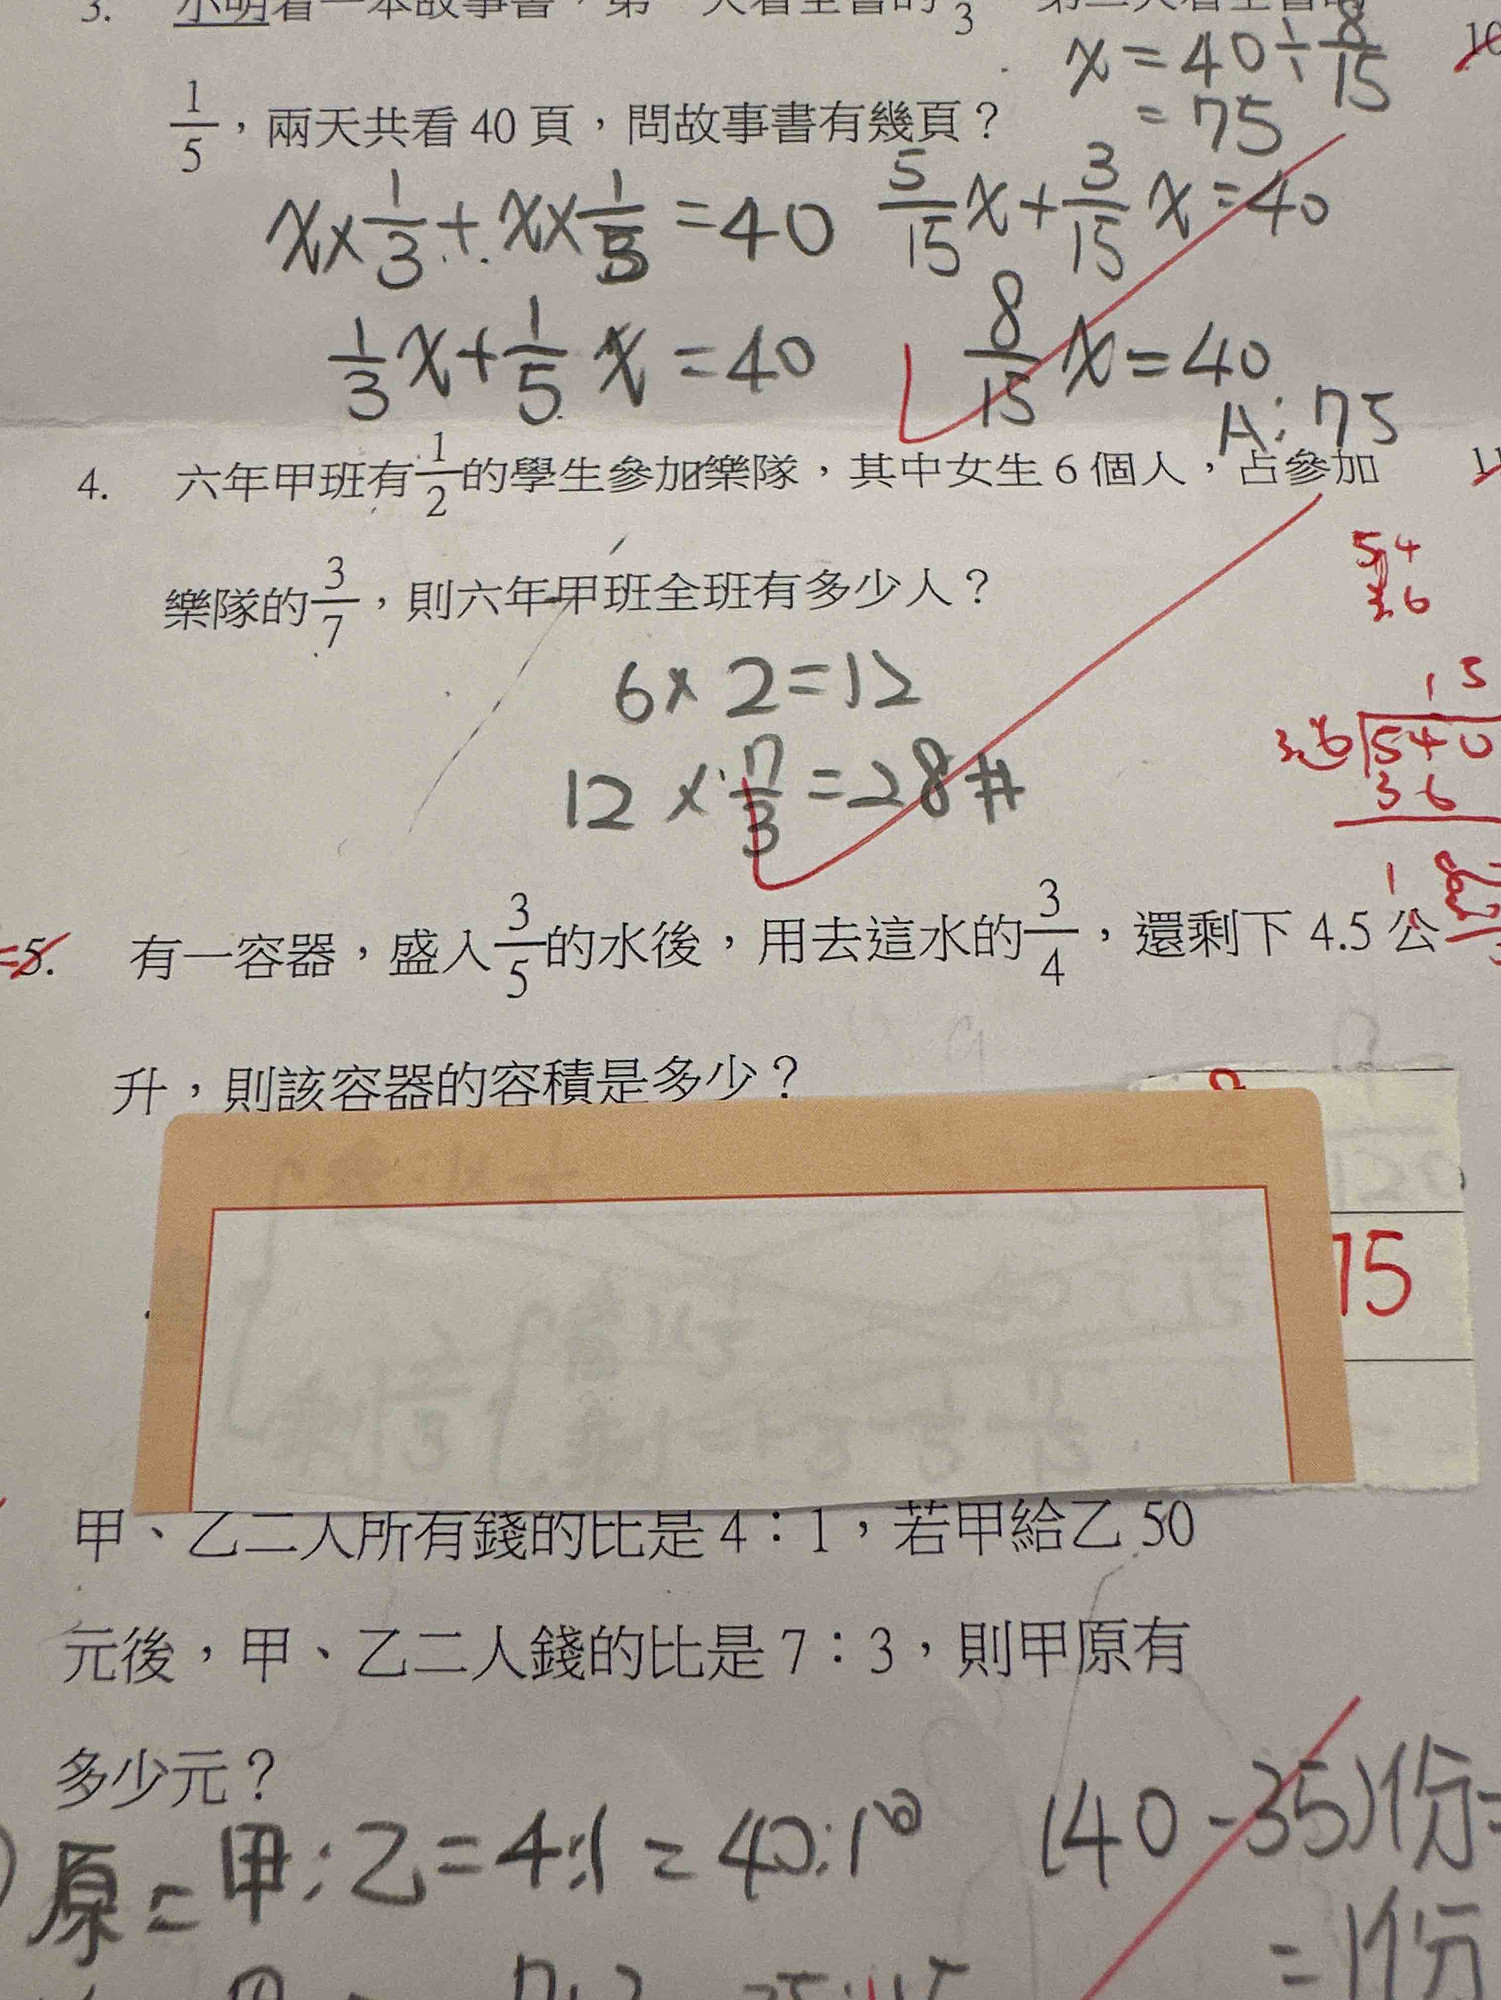 3. 小明看一本故事書，第一天看全書的1/3，第二天看全書的
x = 40 ÷ 8/15
1/5，兩天共看 40 頁，問故事書有幾頁？
= 75
x × 1/3 + x × 1/5 = 40
5/15 x + 3/15 x = 40
1/3 x + 1/5 x = 40
8/15 x = 40
A: 75
4. 六年甲班有1/2的學生參加樂隊，其中女生 6 個人，占參加
樂隊的3/7，則六年甲班全班有多少人？
54
36
6 × 2 = 12
15
36 540
36
12 × 7/3 = 28 #
1
5. 有一容器，盛入3/5的水後，用去這水的3/4，還剩下 4.5 公
升，則該容器的容積是多少？
15
甲、乙二人所有錢的比是 4：1，若甲給乙 50
元後，甲、乙二人錢的比是 7：3，則甲原有
多少元？
原 = 甲:乙 = 4:1 = 40:10
(40 - 35)份 =
= 1份